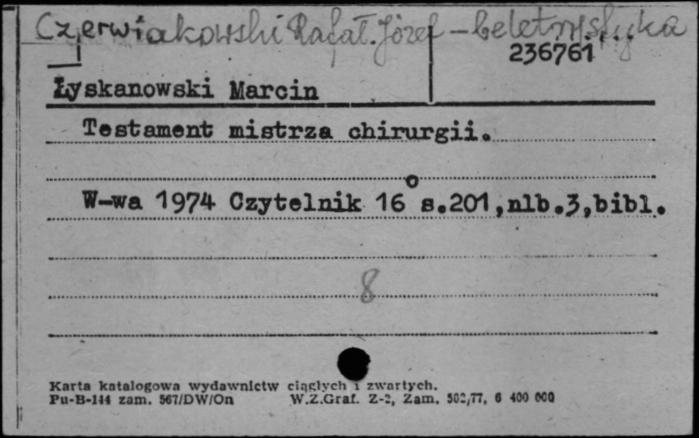 Czerwiakowski Rafał Józef – beletrystyka
236761
Łyskanowski Marcin
Testament mistrza chirurgii.
W-wa 1974 Czytelnik 16° s.201,nlb.3,bibl.
8
Karta katalogowa wydawnictw ciągłych i zwartych.
Pu-B-144 zam. 567/DW/On W.Z.Graf. Z-2, Zam. 502/77, 6 400 000